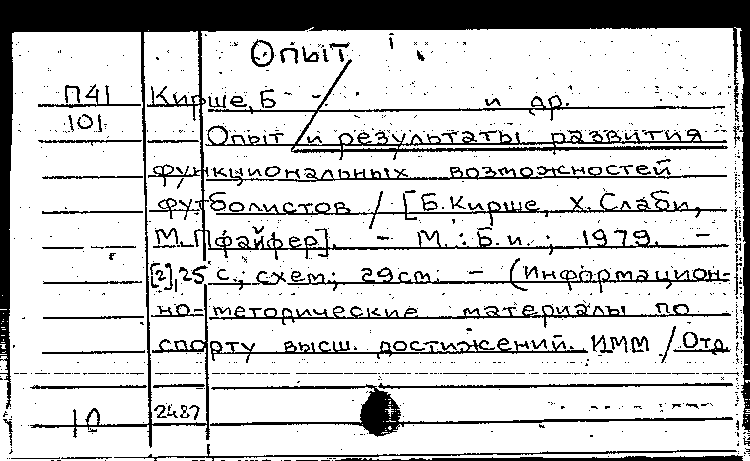 Опыт
П41 Кирше, Б и др.
101 Опыт и результаты развития
функциональных возможностей
футболистов / [Б. Кирше, Х. Слаби,
М. Пфайфер]. - М. : Б. и. ; 1979. -
[2], 25 с.; схем; 29 см. - (Информацион-
но-методические материалы по
спорту высш. достижений. ИММ / Отд
10 2487